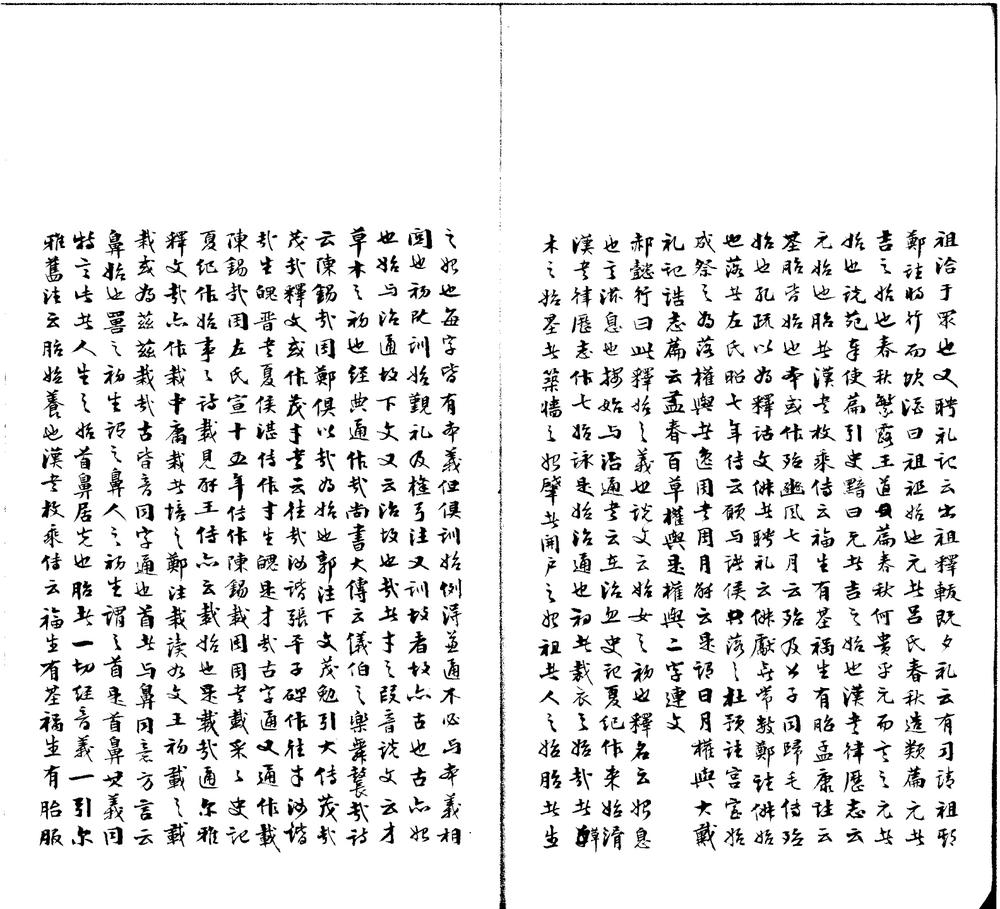 祖洽于眾也又聘礼记云出祖釋軷既夕礼云有司请祖期
鄭註将行而飲酒曰祖祖始也元者吕氏春秋造類篇元者
吉之始也春秋繁露王道篇春秋何贵乎元而言之元者
始也说苑奉使篇引史黯曰元者吉之始也漢书律歷志云
元始也胎者漢书枚乘传云福生有基禍生有胎孟康注云
基胎皆始也本或作殆豳风七月云殆及公子同歸毛传殆
始也孔疏以為釋诂文俶者聘礼云俶獻无常数鄭註俶始
也落者左氏昭七年传云願与诸侯落之杜預註宫室始
成祭之為落權輿者逸周书周月解云是谓日月權輿大戴
礼记誥志篇云孟春百草權輿是權輿二字連文
郝懿行曰此釋始之義也说文云始女之初也釋名云始息
也言滋息也按始与治通书云在治忽史记夏纪作来始滑
漢书律歷志作七始詠是始治通也初者裁衣之始哉者
木之始基者築墙之始肇者開户之始祖者人之始胎者生
之始也每字皆有本義但俱训始例得兼通不必与本義相
関也初既训始觐礼及檀弓注又训故者故亦古也古亦始
也始与治通故下文又云治故也哉者才之叚音说文云才
草木之初也经典通作哉尚書大傳云儀伯之樂舞鼚哉诗
云陳錫哉周鄭俱以哉為始也郭注下文茂勉引大传茂哉
茂哉釋文或作茂才书云往哉汝谐張平子碑作往才汝谐
哉生魄晋书夏侯湛传作才生魄是才哉古字通又通作載
陳錫哉周左氏宣十五年传作陳錫載周周书載采采史记
夏纪作始事事诗載見辟王传亦云載始也是載哉通尔雅
釋文哉亦作栽中庸栽者培之鄭注栽读如文王初載之載
栽或為兹兹栽哉古皆音同字通也首者与鼻同意方言云
鼻始也嘼之初生谓之鼻人之初生謂之首是首鼻义同
特言此者人生之始首鼻居先也胎者一切经音義一引尔
雅舊注云胎始養也漢书枚乘传云福生有基禍生有胎服